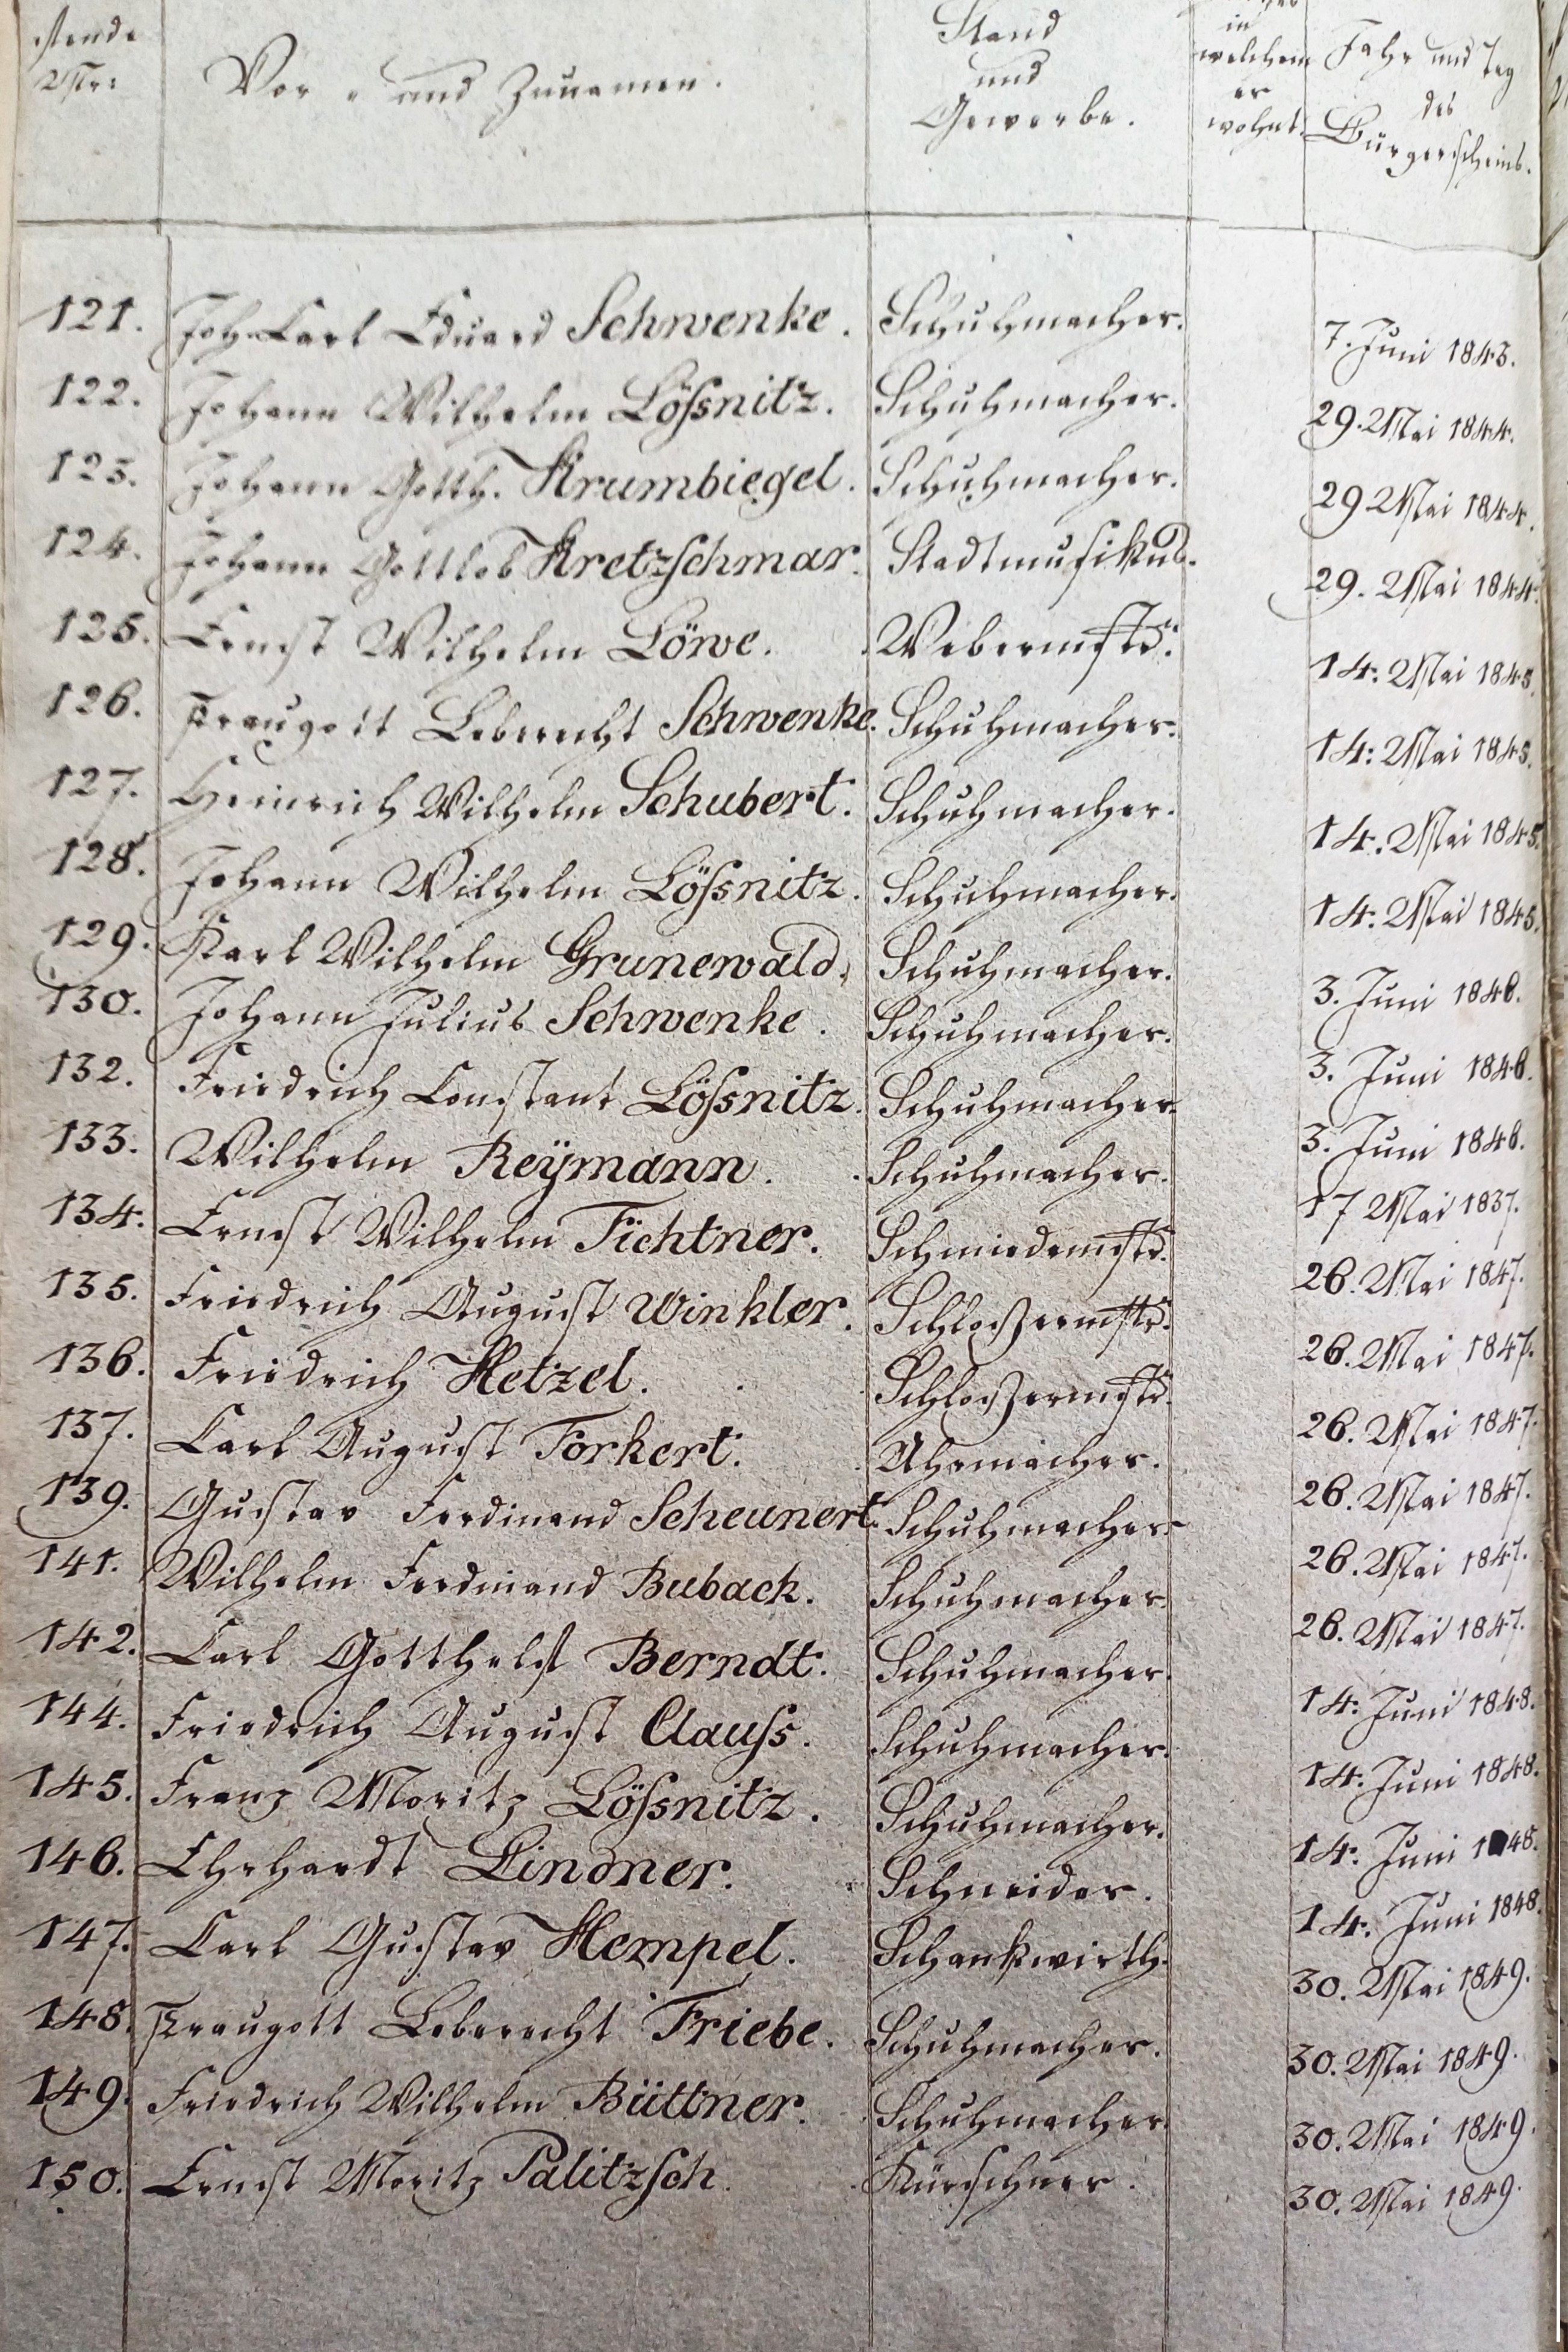 stende
Nr:
Vor- und Zunamen.
Stand
und
Gewerbe.
in
welchem
er
wohnt.
Jahr und Tag
des
Bürgerscheins.
121. Joh. Carl Eduard Schwenke. Schuhmacher. 7. Juni 1843.
122. Johann Wilhelm Lößnitz. Schuhmacher. 29. Mai 1844.
123. Johann Gotth. Krumbiegel. Schuhmacher. 29 Mai 1844.
124. Johann Gottlob Kretzschmar. Stadtmusikus. 29. Mai 1844.
125. Ernst Wilhelm Löwe. Webermstr. 14. Mai 1845.
126. Traugott Leberecht Schwenke. Schuhmacher. 14. Mai 1845.
127. Heinrich Wilhelm Schubert. Schuhmacher. 14. Mai 1845.
128. Johann Wilhelm Lößnitz. Schuhmacher. 14. Mai 1845.
129. Karl Wilhelm Grunewald. Schuhmacher. 3. Juni 1846.
130. Johann Julius Schwenke. Schuhmacher. 3. Juni 1846.
132. Friedrich Constant Lößnitz. Schuhmacher. 3. Juni 1846.
133. Wilhelm Reÿmann. Schuhmacher. 17 Mai 1837.
134. Ernst Wilhelm Fichtner. Schmiedemstr. 26. Mai 1847.
135. Friedrich August Winkler. Schloßermstr. 26. Mai 1847.
136. Friedrich Hetzel. Schloßermstr. 26. Mai 1847.
137. Carl August Forkert. Uhrmacher. 26. Mai 1847.
139. Gustav Ferdinand Scheunert. Schuhmacher. 26. Mai 1847.
141. Wilhelm Ferdinand Buback. Schuhmacher. 26. Mai 1847.
142. Carl Gotthelf Berndt. Schuhmacher. 14. Juni 1848.
144. Friedrich August Clauß. Schuhmacher. 14. Juni 1848.
145. Franz Moritz Lößnitz. Schuhmacher. 14. Juni 1848.
146. Ehrhardt Lindner. Schneider. 14. Juni 1848.
147. Carl Gustav Hempel. Schankwirth. 30. Mai 1849.
148. Traugott Leberecht Friebe. Schuhmacher. 30. Mai 1849.
149. Friedrich Wilhelm Büttner. Schuhmacher. 30. Mai 1849.
150. Ernst Moritz Palitzsch. Kürschner. 30. Mai 1849.